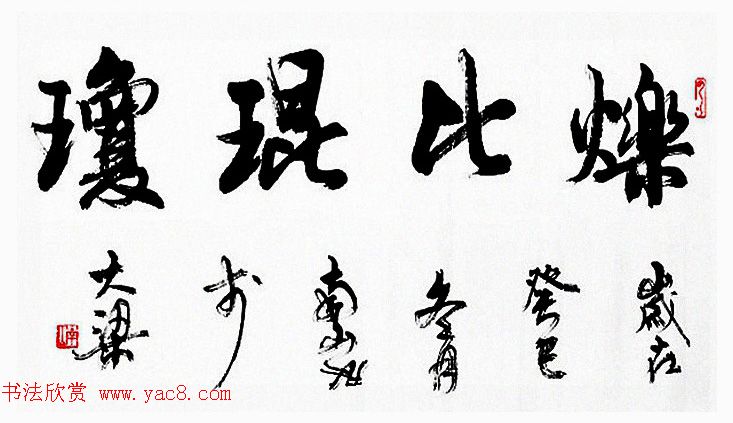 爍比琨瓊
歲在
癸巳
冬月
南山
於
大梁
书法欣赏 www.yac8.com